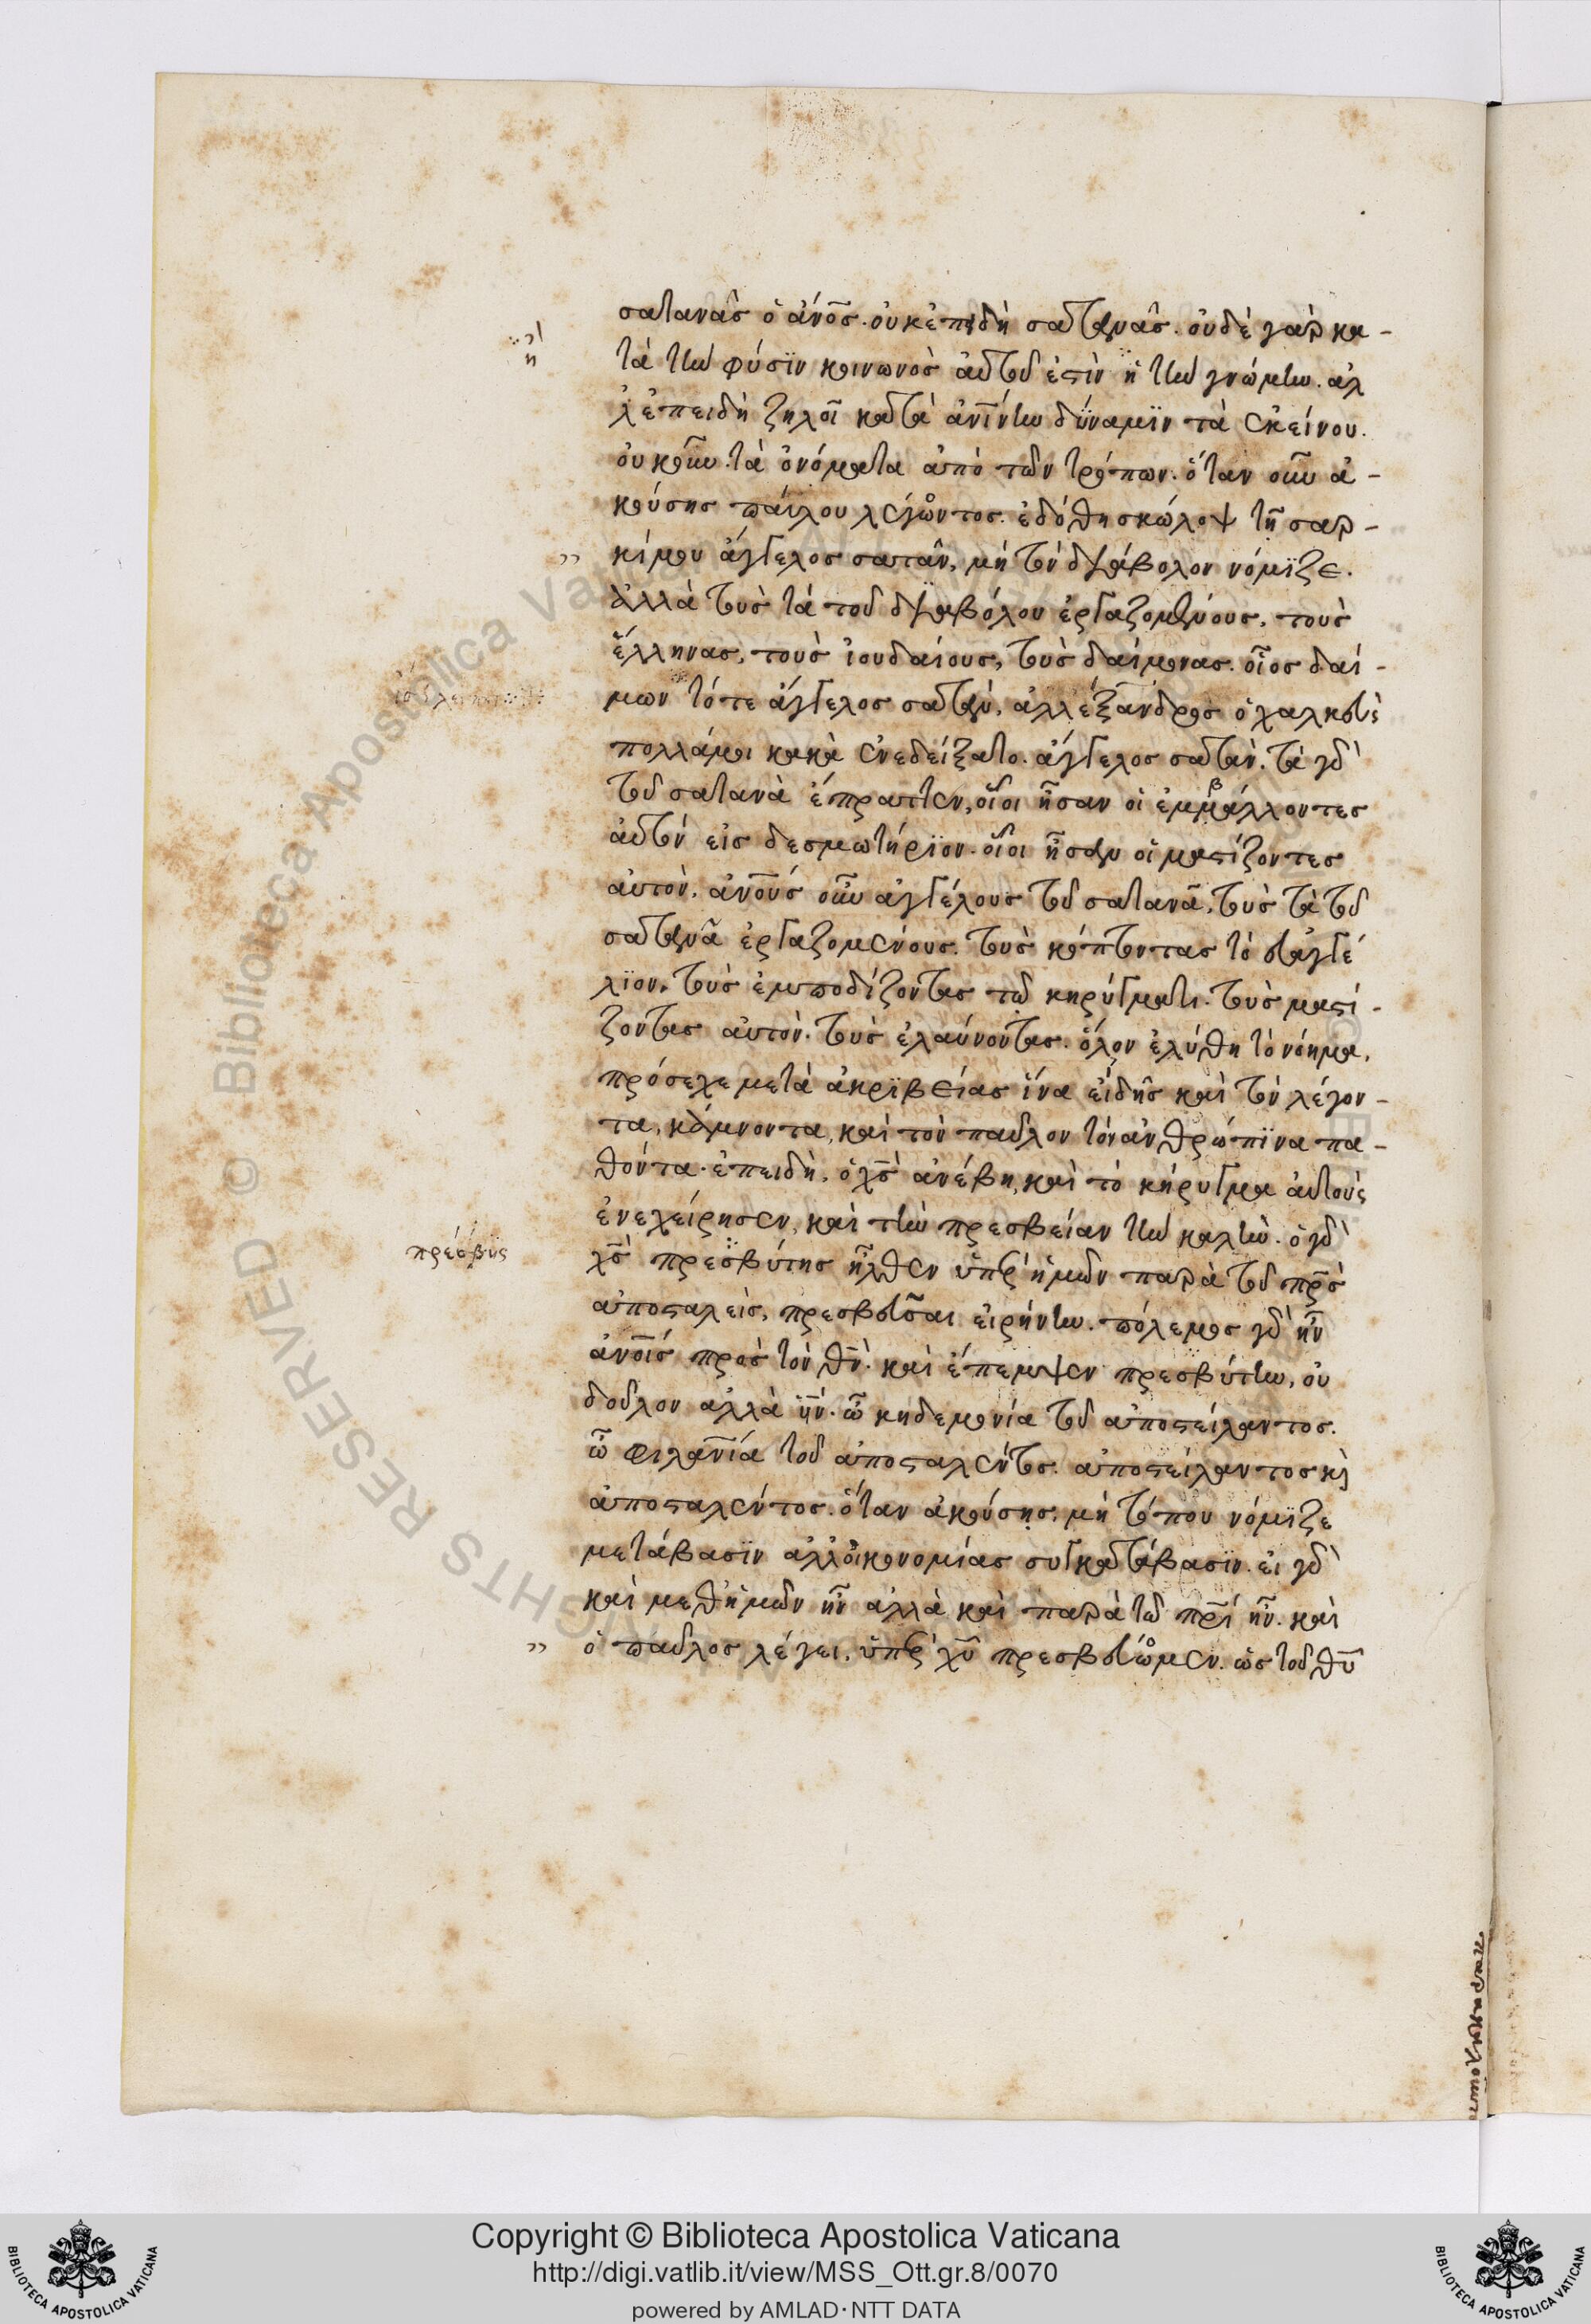 σατανᾶς ὁ ἄνο̅ς. οὐκ ἐπειδὴ σατανᾶς. οὐδὲ γὰρ κα-
τὰ τὴν φύσϊν κοινωνὸς αὐτοῦ ἐστὶν ἢ τὴν γνώμην. ἀλ
λ' ἐπειδὴ ζηλοῖ κατὰ ἀν̅ίνην δύναμϊν τὰ ἐκείνου.
οὐκοῦν τὰ ὀνόματα ἀπὸ τῶν τρόπων. ὅταν οὖν ἀ-
κούσης παύλου λέγοντος. ἐδόθη σκώλοψ τῇ σαρ-
κί μου ἄγγελος σατᾶν, μὴ τὸν διάβολον νόμϊζε.
ἀλλὰ τοὺς τὰ τοῦ διαβόλου ἐργαζομένους. τοὺς
ἕλληνας, τοὺς ἰουδαίους, τοὺς δαίμονας. οἷος δαί-
μων τότε ἄγγελος σατὰν, ἀλλέξανδρος ὁ χαλκεὺς
πολλά μοι κακὰ ἐνεδείξατο. ἄγγελος σατάν. τὰ γὰρ
τοῦ σατανὰ ἔπραττεν, οἷοι ἦσαν οἱ ἐμμβάλλοντες
αὐτὸν εἰς δεσμωτήρϊον. οἷοι ἦσαν οἱ μαστίζοντες
αὐτόν. ἀν̅ούς οὖν ἀγγέλους τοῦ σατανᾶ, τοὺς τὰ τοῦ
σατανᾶ ἐργαζομένους. τοὺς κόπτοντας τὸ εὐαγγέ
λϊον, τοὺς ἐμποδίζοντας τῶ κηρύγματι. τοὺς μαστί-
ζοντας αὐτόν. τοὺς ἐλαύνοντας. ὅλον ἐλύθη τὸ νόημα.
πρόσεχε μετὰ ἀκρϊβείας ἵνα εἰδῇς καὶ τὸν λέγον-
τα, κάμνοντα, καὶ τὸν παῦλον τὸν ἀνθρώπϊνα πα-
θόντα. ἐπειδὴ, ὁ χ̅ς ἀνέβη, καὶ τὸ κήρυγμα αὐτοὺς
ἐνεχείρησεν, καὶ τὴν πρεσβείαν τὴν καλὴν. ὁ γὰρ
χ̅ς πρεσβύτης ἦλθεν ὑπὲρ ἡμῶν παρὰ τοῦ πρ̅ς
ἀποσταλεὶς, πρεσβεῦσαι εἰρήνην. πόλεμος γὰρ ἦν
ἀν̅οίς πρὸς τὸν θ̅ν. καὶ ἔπεμψεν πρεσβύτην, οὐ
δοῦλον ἀλλὰ υ̅ν. ὢ κηδεμονία τοῦ ἀποστείλαντος.
ὢ φιλαν̅ία τοῦ ἀποσταλέντος. ἀποστείλαντος κ̀
ἀποσταλέντος. ὅταν ἀκούσης, μὴ τόπου νόμϊζε
μετάβασϊν ἀλλ' οἰκονομίας συγκατάβασϊν. εἰ γὰρ
καὶ μεθ' ἡμῶν ἦν ἀλλὰ καὶ παρὰ τῶ πρ̅ί ἦν. καὶ
ὁ παῦλος λέγει. ὑπὲρ χ̅υ πρεσβεύωμεν. ὡς τοῦ θ̅υ
πρέσβης
Copyright © Biblioteca Apostolica Vaticana
http://digi.vatlib.it/view/MSS_Ott.gr.8/0070
powered by AMLAD·NTT DATA
BIBLIOTECA APOSTOLICA VATICANA
BIBLIOTECA APOSTOLICA VATICANA